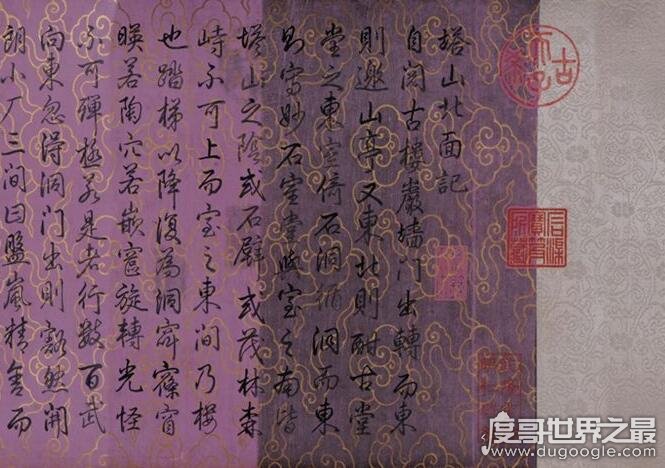 塔山北面記
自閱古樓巖墻門出轉而東
則邀山亭又東北則酣古堂
堂之東室倚石洞循洞而東
則寫妙石室堂與室之南皆
塔山之陰或石壁或茂林森
峙不可上而室之東間乃樓
也踏梯以降復為洞窈窱窅
暎若陶穴若嵌竇旋轉光怪
不可殫極若是者行數百武
向東忽得洞門出則豁然開
朗小厂三間曰盤嵐精舍而
古希天子
石渠寶笈所藏
度哥世界之最
www.dugoogle.com